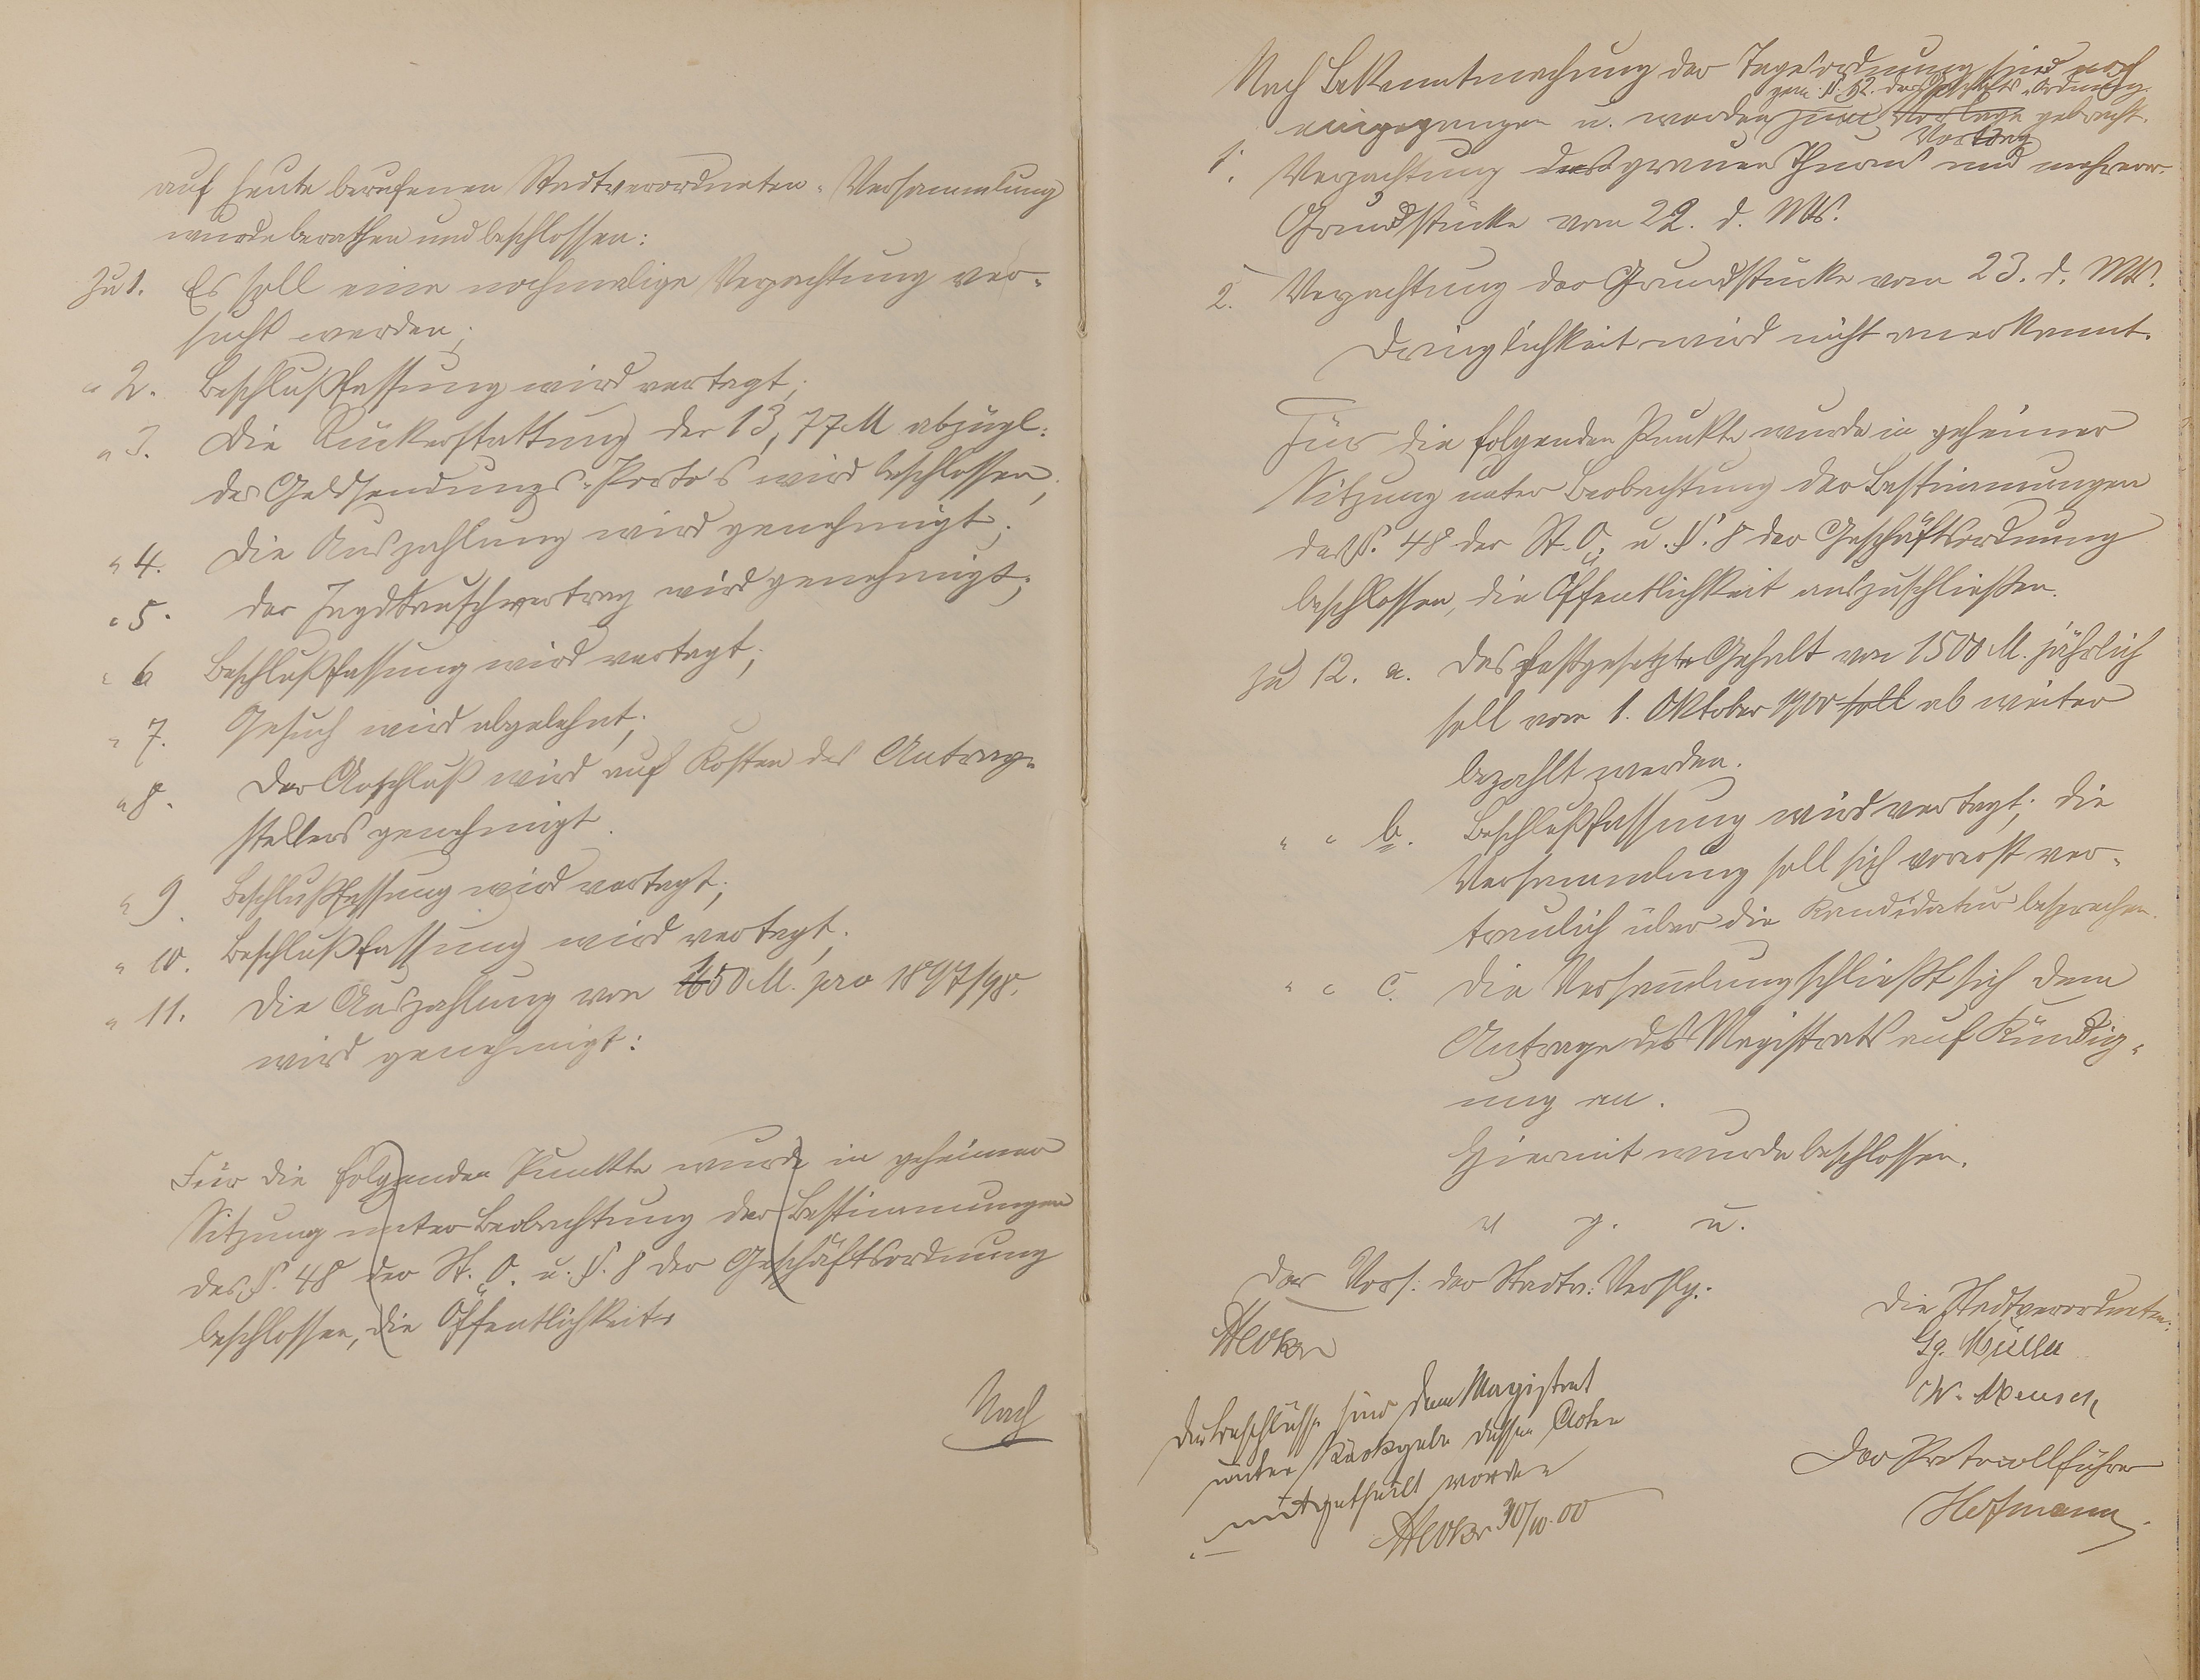 auf heute berufenen Stadtverordneten-Versammlung
wurde berathen und beschlossen:
Zu 1. Es soll eine nochmalige Verpachtung ver-
sucht werden;
" 2. Beschlußfassung wird vertagt;
" 3. Die Rückerstattung der 13,77 M abzügl:
des Geldsendungs-Porto's wird beschlossen;
" 4. Die Auszahlung wird genehmigt;
" 5. Der Jagdtauschvertrag wird genehmigt;
" 6 Beschlußfassung wird vertagt;
" 7. Gesuch wird abgelehnt;
" 8. Der Anschluß wird auf Kosten des Antrag-
stellers genehmigt.
" 9. Beschlußfassung wird vertagt;
" 10. Beschlußfassung wird vertagt;
" 11. Die Auszahlung von 150 M. pro 1897/98.
wird genehmigt:
Für die folgenden Punkte wurde in geheimer
Sitzung unter Beobachtung der Bestimmungen
des §. 48 der St. O. u. §. 8 der Geschäftsordnung
beschlossen, die Öffentlichkeit
Nach
Nach Bekanntmachung der Tagesordnung sind noch
gem. §. 12. der Geschäfts-Ordnung
eingegangen u. werden zum Vorlage gebracht.
Vortrag
1. Verpachtung des grauen Thurms und mehrerer
Grundstücke vom 22. d. Mts.
2. Verpachtung der Grundstücke vom 23. d. Mts.
Dringlichkeit wird nicht anerkannt.
Für die folgenden Punkte wurde in geheimer
Sitzung unter Beobachtung der Bestimmungen
des §. 48 der St. O. u. §. 8 der Geschäftsordnung
beschlossen, die Öffentlichkeit auszuschließen.
Zu 12. a. Das festgesetzte Gehalt von 1500 M. jährlich
soll vom 1. Oktober 1900 soll ab weiter
bezahlt werden.
" " b. Beschlußfassung wird vertagt; die
Versammlung soll sich vorerst ver-
traulich über die Kandidatur besprechen.
" " c. Die Versammlung schließt sich dem
Antrage des Magistrats auf Kündig-
ung an.
Hiermit wurde beschlossen.
v g. u.
Der Vors: der Stadtv: Verslg.
Die Stadtverordneten:
Gg. Müller
W. Mensch
Die Beschlüsse sind dem Magistrat
unter Rückgabe dessen Acten
mitgetheilt worden
30/10.00
Der Protocollführer
Hofmann.